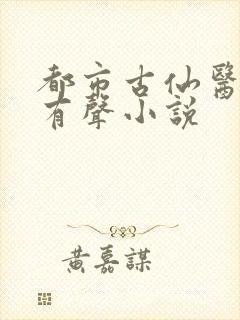 都市古仙醫
有聲小說
黃嘉謀